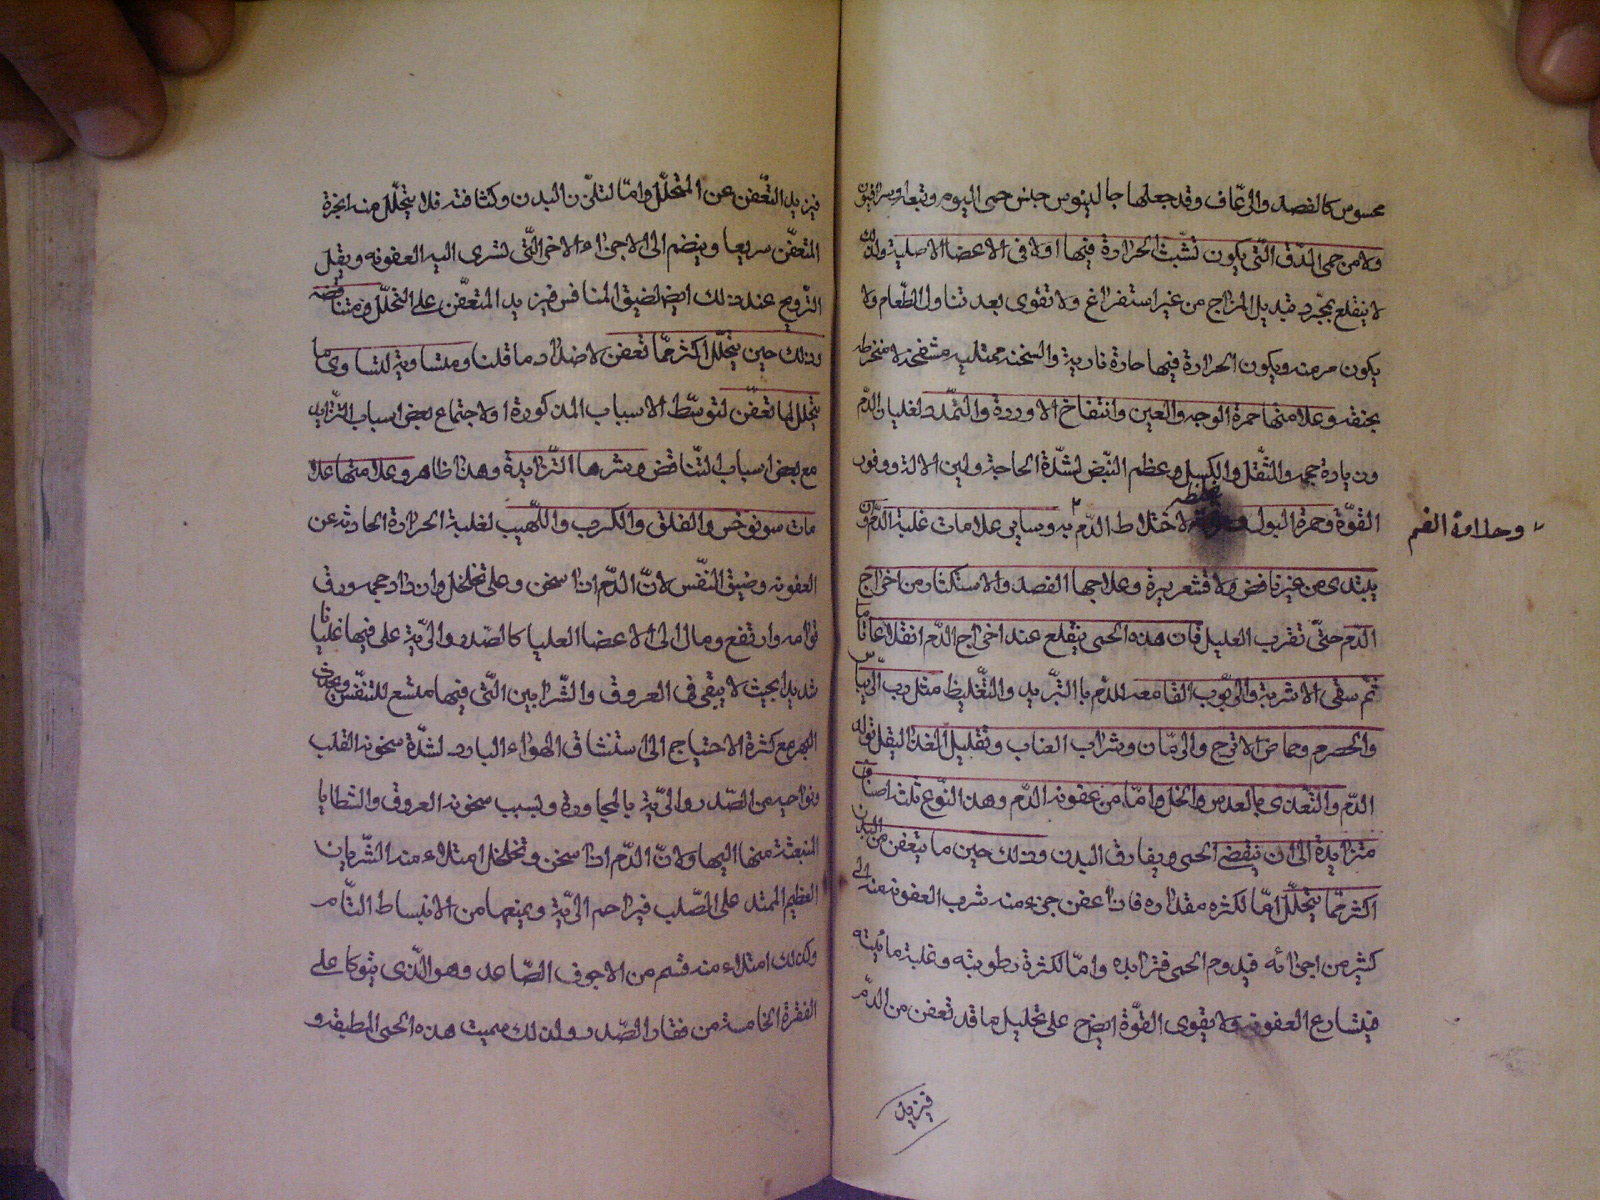 محسوس كالفصد والرعاف وقد جعلها جالينوس جنس حمى اليوم وتبعه
ولا من حمى الدق التي يكون تشبث الحرارة فيها اولا في الاعضا الاصلية ولذلك
لا ينقلع بمجرد تبديل المزاج من غير استفراغ ولا تقوى بعد تناول الطعام ولا
يكون مرمنه ويكون الحرارة فيها حادة نارية والسخنه ممتليه منتفخه لا منخرطه
وعلامتها حمرة الوجه والعين وانتفاخ الاوردة والتمدد لغليان الدم
وزيادة حجمه والثقل والكسل وعظم النبض لشدة الحاجة ولين الالة ووفور
القوة وحمرة البول وغلظه لاختلاط الدم به وساير علامات غلبة الدم وان
وحلاوة الفم
يبتدى من غير نافض ولا قشعريرة وعلاجها الفصد والاستكثار من اخراج
الدم حتى تقرب العليل فان هذه الحمى ينقلع عند اخراج الدم انقلاعا تاما
ثم سقى الاشربة والربوب القامعه للدم بالتبريد والتغليظ مثل رب الريباس
والحصرم وحماض الاترج والرمان وشراب العناب وتقليل الغذا ليقل تولد
الدم والتغذى بالعدس والخل واما من عفونه الدم وهذا النوع ثلثه اصناف
متزايدة الى ان ينقضى الحمى ويفارق البدن وذلك حين ما يتعفن من البدن
اكثر مما يتحلل اما لكثره مقداره فاذا عفن جزء منه شرب العفونه منه الى
كثير من اجزائه فيدوم الحمى متزايده واما لكثرة رطوبته وغلبة مائيته
فيتسارع العفونه ولا يقوى القوة ايضا على تحليل ما قد تعفن من الدم
فيزيد
فيزيد التعفن عن المتحلل واما لتلزز البدن وكثافته فلا يتحلل منه ابخرة
المتعفن سريعا وينضم الى الاجزاء الاخر التى تسرى اليه العفونه ويقل
الترويح عند ذلك ايضا لضيق المنافس فيزيد المتعفن على المتحلل ومتناقصه
وذلك حين يتحلل اكثر مما تعفن لاضداد ما قلنا ومتساوية لتساوى ما
يتحلل لما تعفن لتوسط الاسباب المذكورة او لاجتماع بعض اسباب التزايد
مع بعض اسباب التناقض وشرها التزايدة وهذا ظاهر وعلامتها علا
مات سونوخس والقلق والكرب واللهيب لغلبة الحرارة الحادثه عن
العفونه وضيق النفس لان الدم اذا سخن وغلى تخلخل وازداد حجمه ورق
قوامه وارتفع ومال الى الاعضا العليا كالصدر والرية غلى فيها غليانا
شديدا بحيث لا يبقى في العروق والشرايين التى فيها متسع للتنفس ويحدث
البهر مع كثرة الاحتياج الى استنشاق الهواء البارد لشدة سخونه القلب
ونواحيه من الصدر والرية بالمجاورة وبسبب سخونه العروق والشظايا
المنبعثه منها اليها ولان الدم اذا سخن وتخلخل امتلاء منه الشريان
العظيم الممتد على الصلب فيزاحم الرية ويمنعها من الانبساط التام
وكذلك امتلاء منه قسم من الاجوف الصاعد وهو الذى يتوكا على
الفقرة الخامسة من فقار الصدر ولذلك سميت هذه الحمى المطبقه و